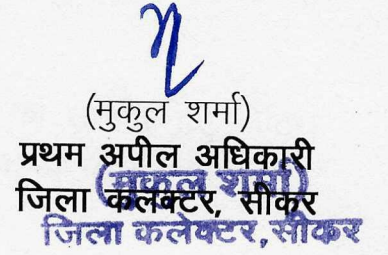 (मुकुल शर्मा)
प्रथम अपील अधिकारी
जिला कलक्टर, सीकर
(मुकुल शर्मा)
जिला कलेक्टर, सीकर